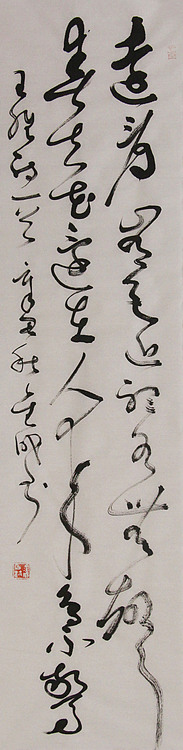 远看山有色近听水无声
春去花还在人来鸟不惊
王维诗一首 辛丑秋